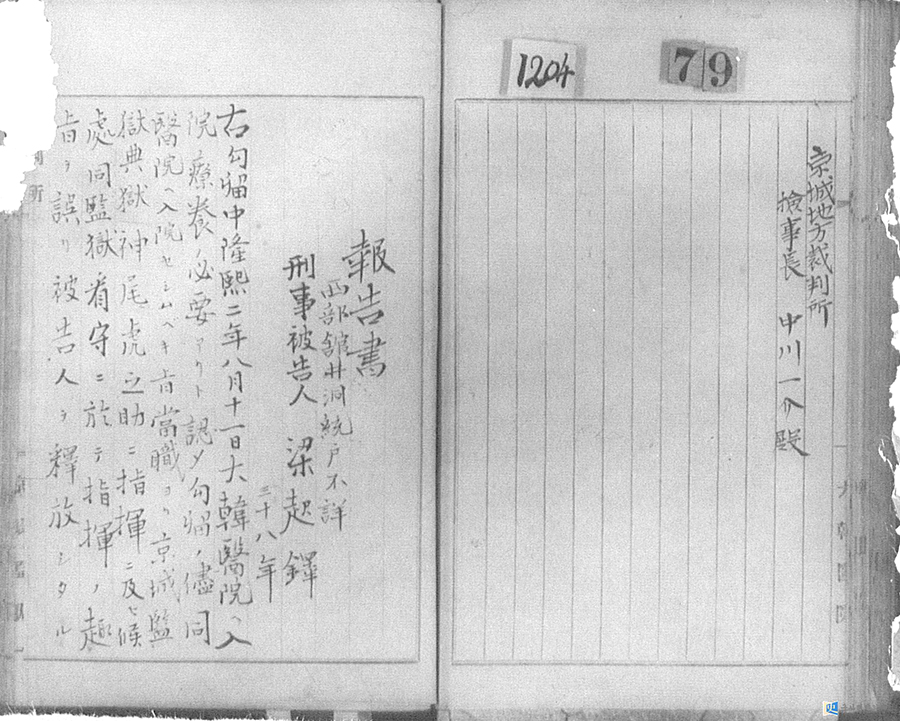 1204
79
京城地方裁判所
檢事長 中川一介殿
報告書
西部舘井洞統戸不詳
刑事被告人 梁起鐸
三十八年
右勾留中隆熙二年八月十一日大韓醫院ヘ入
院療養必要アリト認メ勾留ノ儘同
醫院ヘ入院セシムヘキ旨當職ヨリ京城監
獄典獄神尾虎之助ニ指揮ニ及ヒ候
處同監獄看守ニ於テ指揮ノ趣
旨ヲ誤リ被告人ヲ釋放シタル